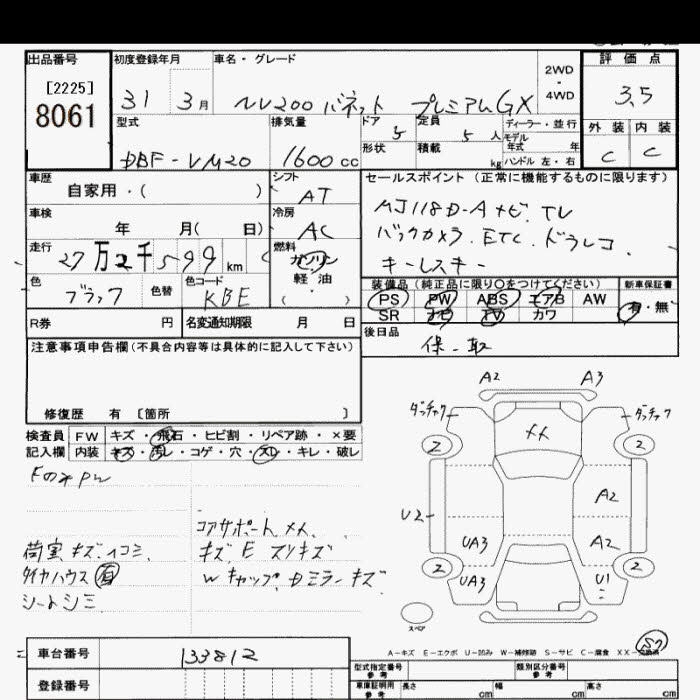 出品番号
[2225]
8061
初度登録年月
31 3月
車名・グレード
NV200 バネット プレミアムGX
2WD
・
4WD
評価点
3.5
外装 内装
C C
型式
DBF-VM20
排気量
1600cc
ドア
5
定員
5人
ディーラー・並行
モデル
年式 年
形状
積載
kg
ハンドル 左・右
車歴
自家用・( )
シフト
AT
車検
年 月( 日)
冷房
AC
走行
27万2千599km
燃料
ガソリン
軽油
( )
色
ブラック
色替
色コード
KBE
R券 円
名変通知期限 月 日
セールスポイント (正常に機能するものに限ります)
MJ118D-Aナビ.TV
バックカメラ.ETC.ドラレコ
キーレスキー
装備品(純正品に限り○をつけてください)
新車保証書
PS PW ABS エアB AW
SR ナビ TV カワ
有・無
後日品
保-取
注意事項申告欄(不具合内容等は具体的に記入して下さい)
修復歴 有 〔箇所 〕
検査員
記入欄
FW キズ・飛石・ヒビ割・リペア跡・×要
内装 キズ・汚レ・コゲ・穴・スレ・キレ・破レ
Fのみpw
コアサポートメメ
荷室キズ.イコミ.
キズ.E スリキズ
タイヤハウス
Wキャップ.Dミラーキズ
シートシミ
A2 A3
ダッチャク ダッチャク
メメ
2 2
A2
U2
UA3 A2
2 2
UA3 U1
スペア
A-キズ E-エクボ U-凹み W-補修跡 S-サビ C-腐食 XX-交換済
車台番号 133812
登録番号
型式指定番号
参考
類別区分番号
参考
車庫証明用
参考
長さ cm 幅 cm 高さ cm